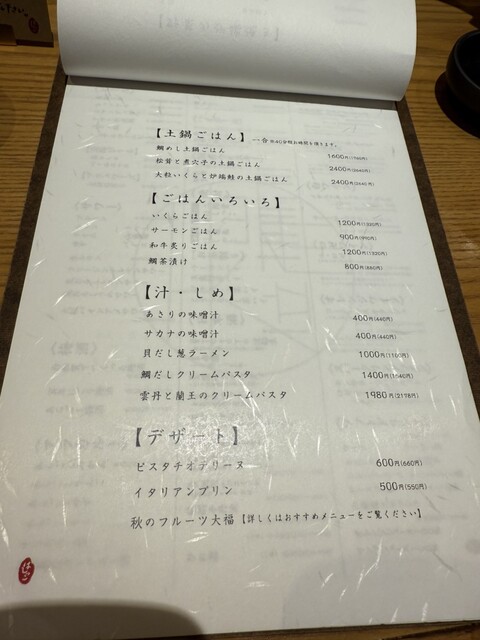 【土鍋ごはん】 一合 ※40分程お時間を頂きます。
鯛めし土鍋ごはん 1600円(1760円)
松茸と煮穴子の土鍋ごはん 2400円(2640円)
大粒いくらと炉端鮭の土鍋ごはん 2400円(2640円)
【ごはんいろいろ】
いくらごはん 1200円(1320円)
サーモンごはん 900円(990円)
和牛炙りごはん 1200円(1320円)
鯛茶漬け 800円(880円)
【汁・しめ】
あさりの味噌汁 400円(440円)
サカナの味噌汁 400円(440円)
貝だし葱ラーメン 1000円(1100円)
鯛だしクリームパスタ 1400円(1540円)
雲丹と蘭王のクリームパスタ 1980円(2178円)
【デザート】
ピスタチオテリーヌ 600円(660円)
イタリアンプリン 500円(550円)
秋のフルーツ大福【詳しくはおすすめメニューをご覧ください】